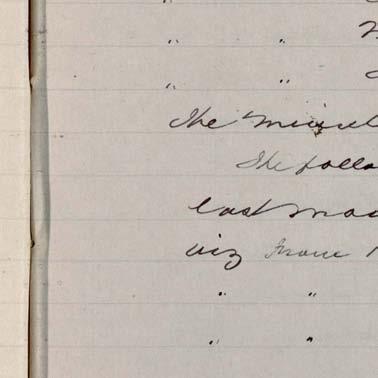 "    "
"    "
The minut
The follo
last mon
viz from
"    "
"    "